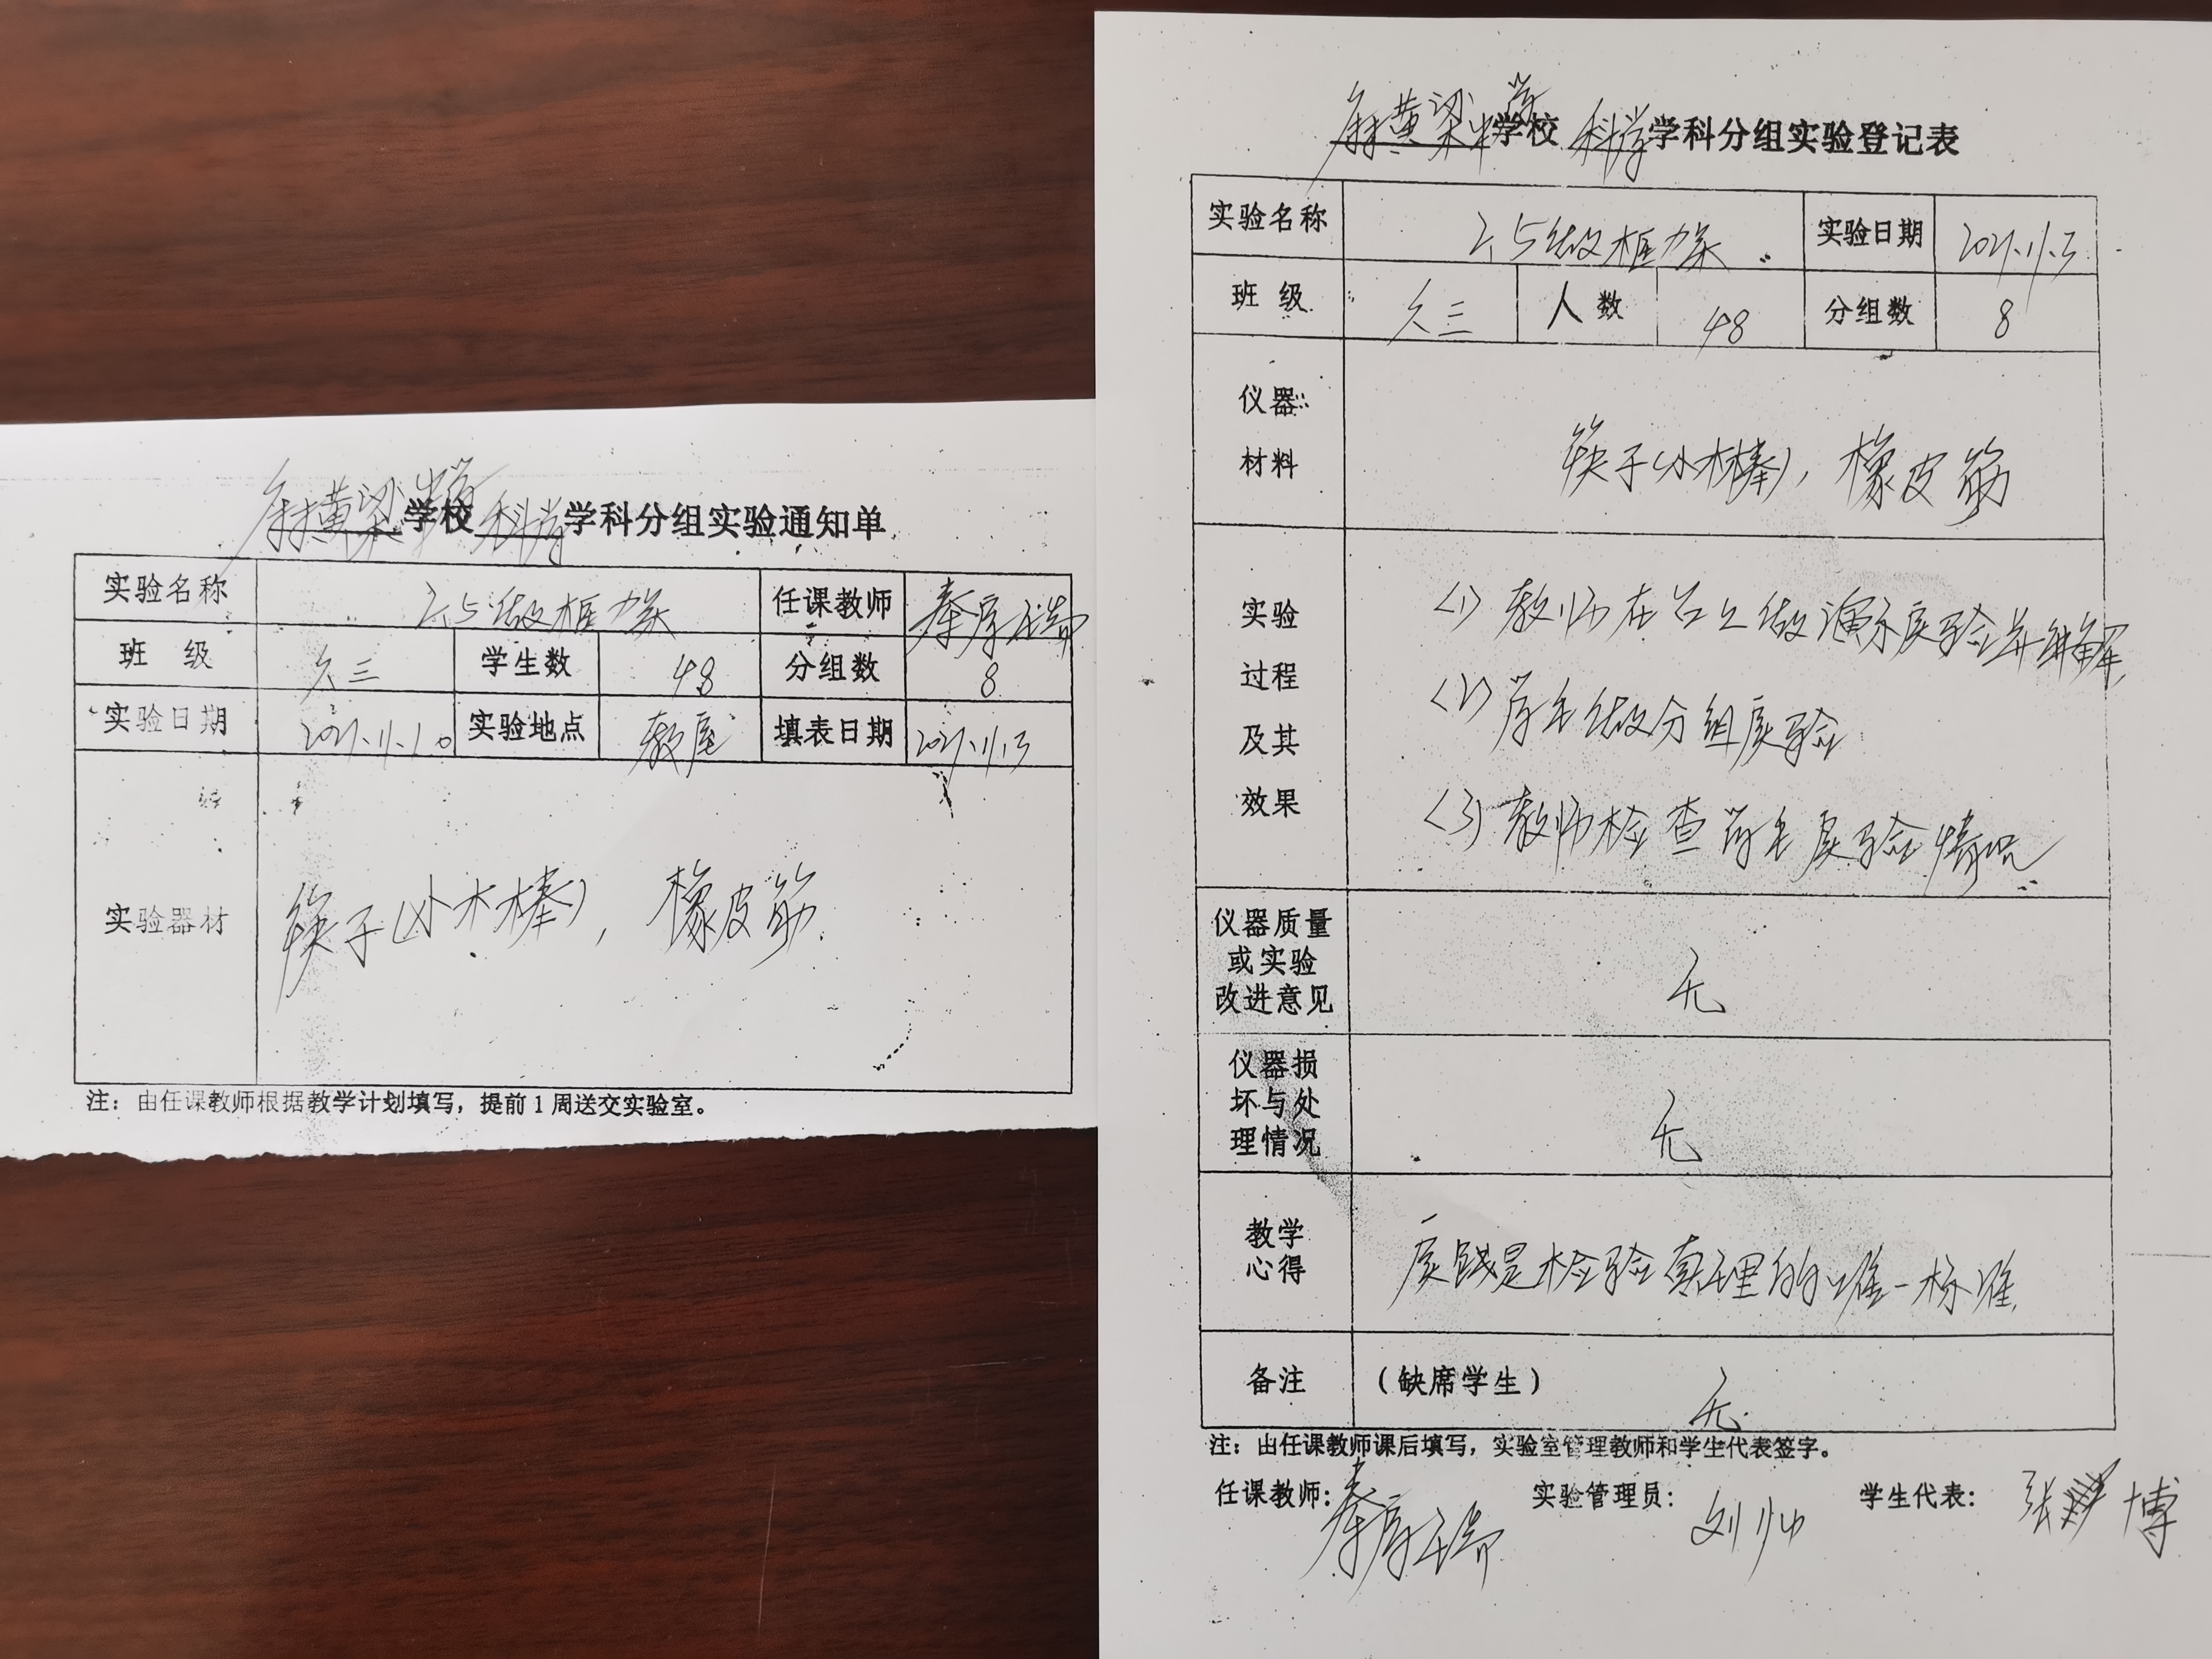 麻黄梁中学学校 科学 学科分组实验通知单
实验名称 2.5做框架 任课教师 秦厚瑞
班 级 六三 学生数 48 分组数 8
实验日期 2021.11.10 实验地点 教室 填表日期 2021.11.3
实验器材 筷子(小木棒),橡皮筋.
注:由任课教师根据教学计划填写,提前1周送交实验室。
麻黄梁中学学校 科学 学科分组实验登记表
实验名称 2.5做框架 实验日期 2021.11.3
班 级 六三 人数 48 分组数 8
仪器
材料
筷子(小木棒),橡皮筋
实验
过程
及其
效果
(1)教师在台上做演示实验并讲解.
(2)学生做分组实验
(3)教师检查学生实验情况
仪器质量
或实验
改进意见
无
仪器损
坏与处
理情况
无
教学
心得
实践是检验真理的唯一标准.
备注 (缺席学生) 无
注:由任课教师课后填写,实验室管理教师和学生代表签字。
任课教师:秦厚瑞 实验管理员:刘帅 学生代表:张 博